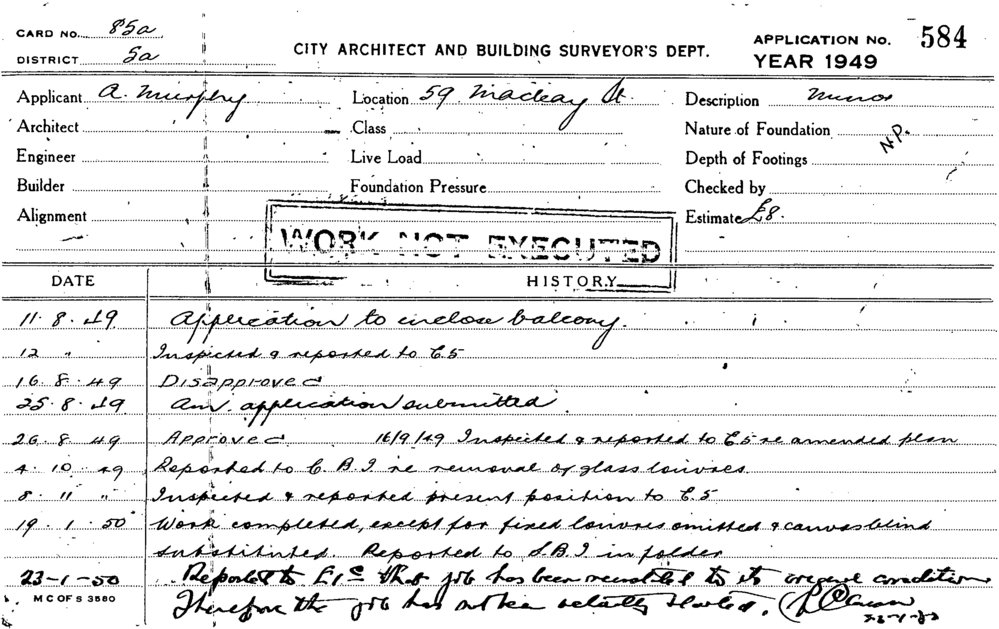 CARD NO. 85a
DISTRICT 5a
CITY ARCHITECT AND BUILDING SURVEYOR'S DEPT.
APPLICATION NO. 584
YEAR 1949
Applicant A. Murphy
Location 59 Macleay St.
Description Minor
Architect
Class
Nature of Foundation
N.P.
Engineer
Live Load
Depth of Footings
Builder
Foundation Pressure
Checked by
Alignment
Estimate £8.
WORK NOT EXECUTED
DATE HISTORY
11.8.49 Application to enclose balcony.
12 " Inspected & reported to E.5
16.8.49 Disapproved
25.8.49 Am. application submitted.
26.8.49 Approved 16/9/49 Inspected & reported to E.5 re amended plan
4.10.49 Reported to C.B.I re removal of glass louvres
8.11 " Inspected & reported present position to E.5
19.1.50 Work completed, except for fixed louvres omitted & canvas blind
substituted. Reported to S.B.I in folder
23-1-50 Reported to that job has been to its original condition
Therefore the job has not been actually started.
M C OF S 3580